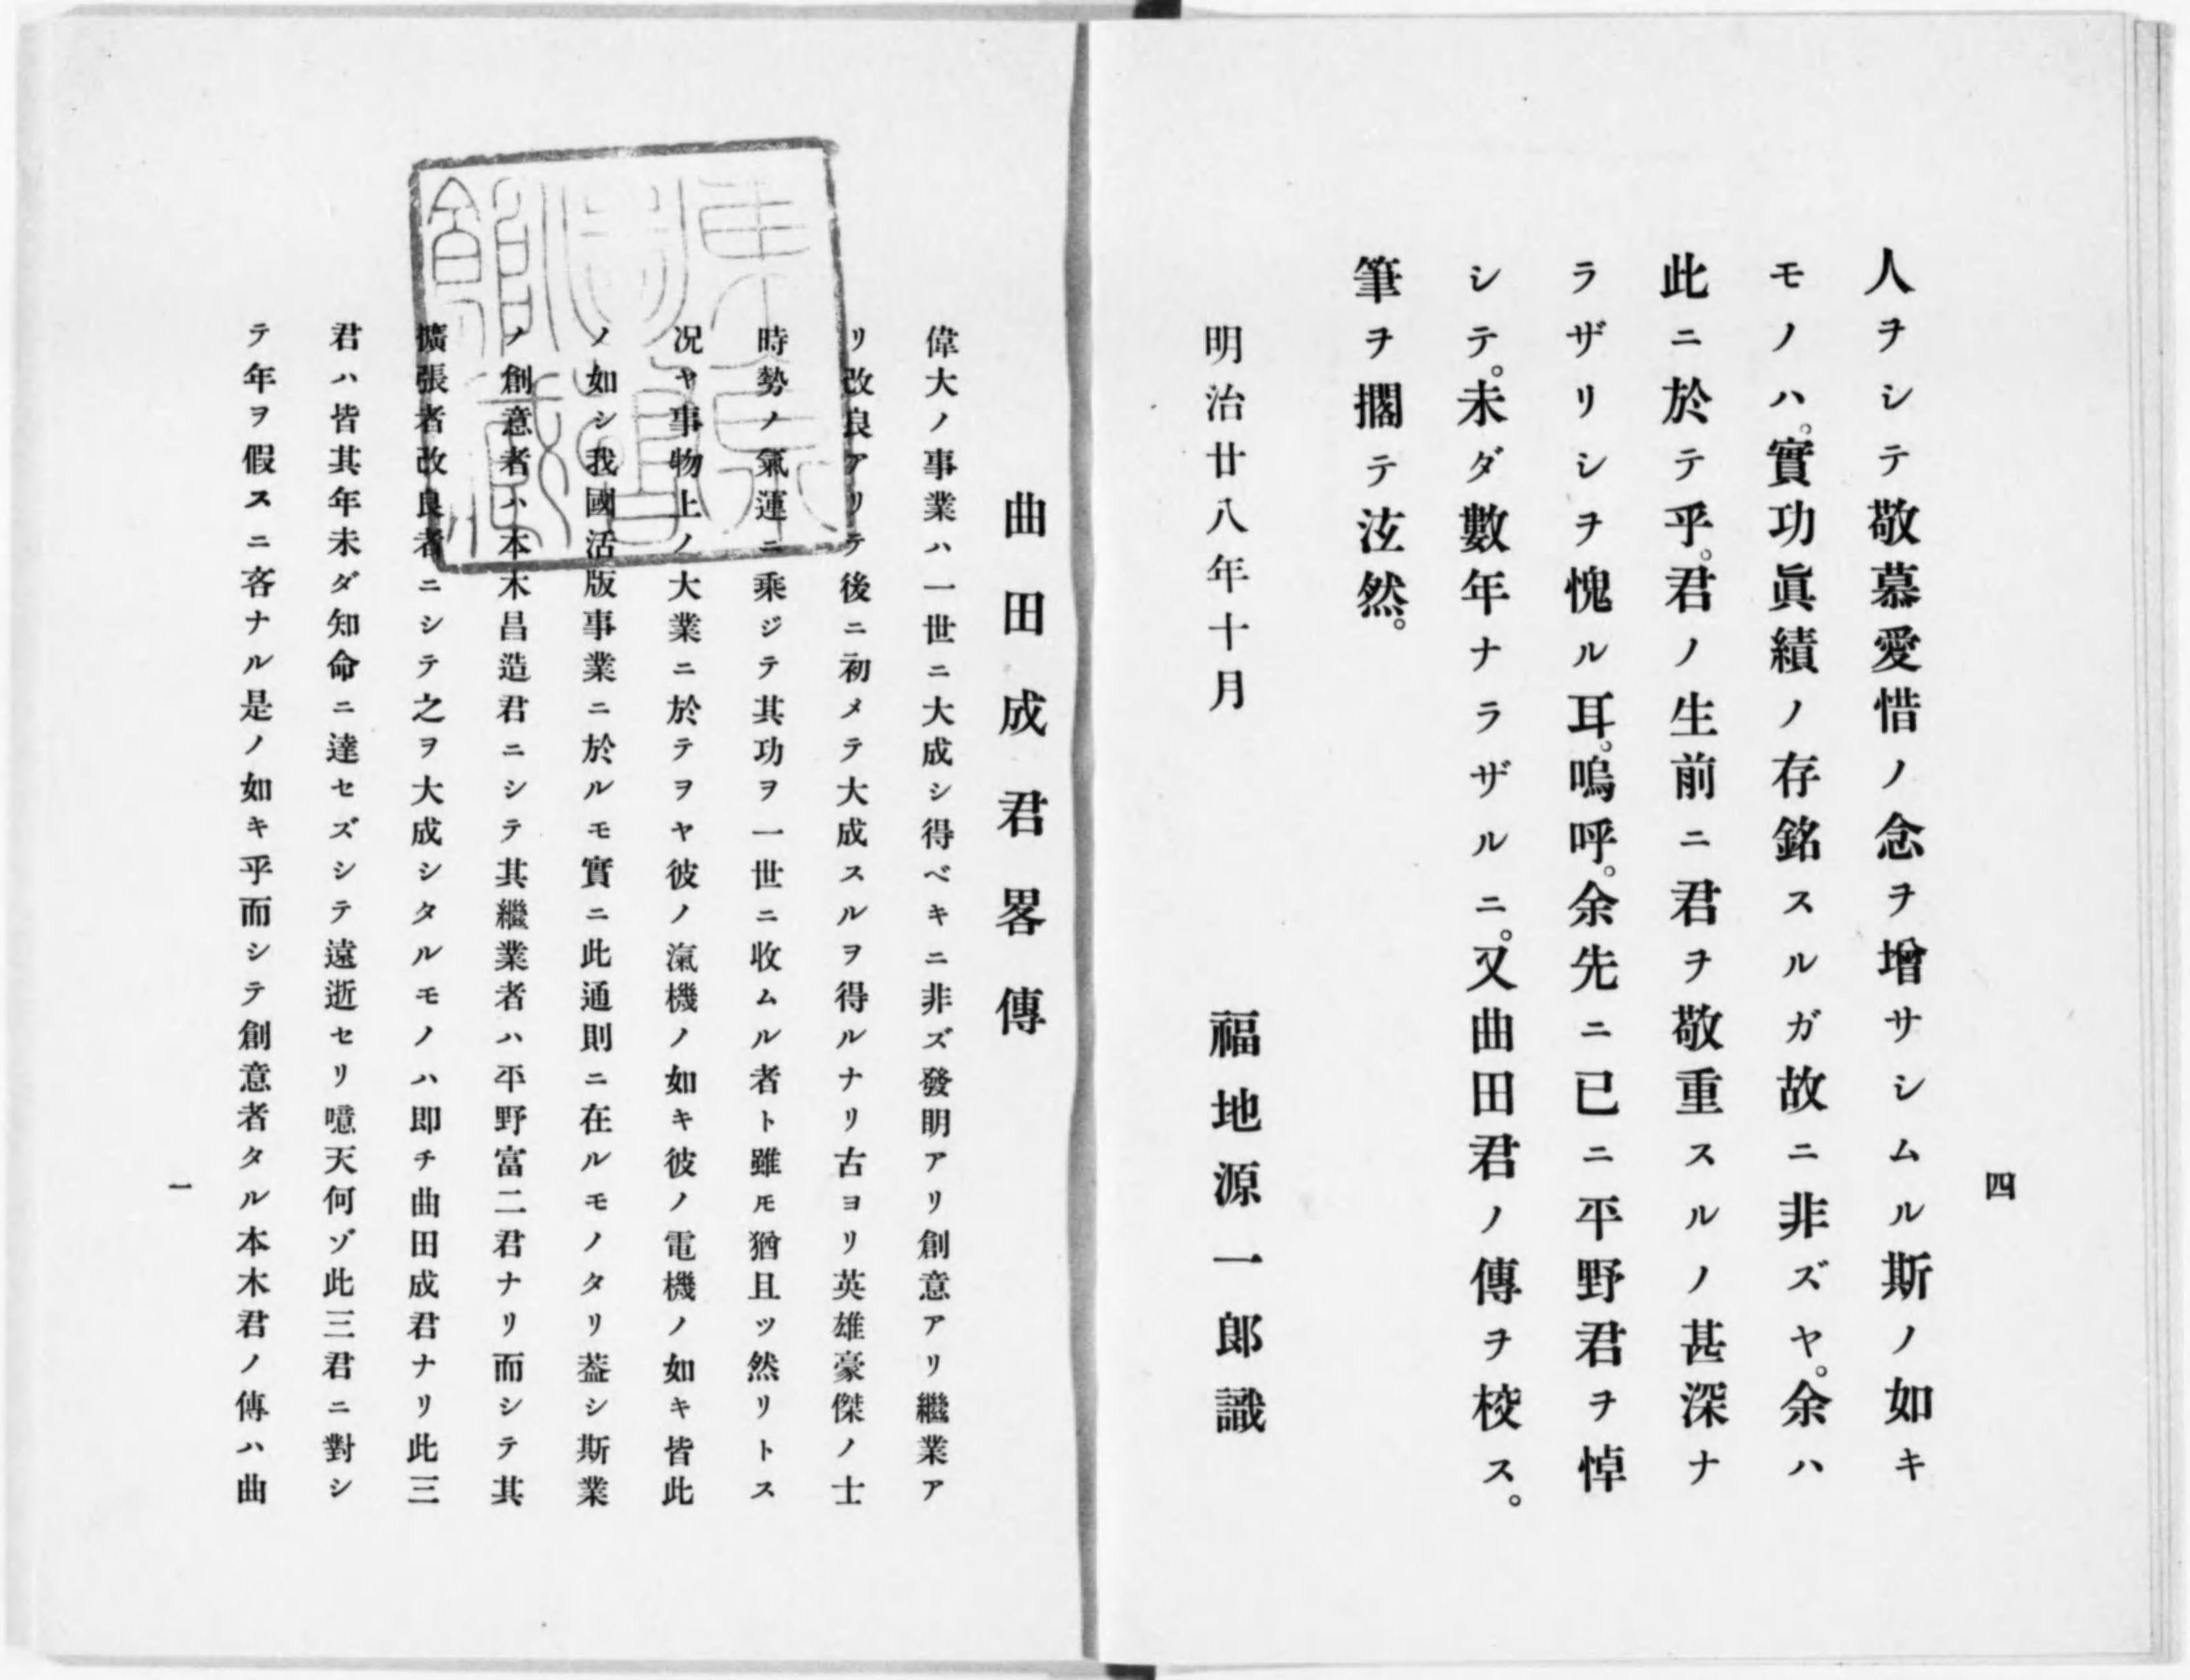 四
人ヲシテ敬慕愛惜ノ念ヲ增サシムル斯ノ如キ
モノハ。實功眞績ノ存銘スルガ故ニ非ズヤ。余ハ
此ニ於テ乎。君ノ生前ニ君ヲ敬重スルノ甚深ナ
ラザリシヲ愧ル耳。嗚呼。余先ニ已ニ平野君ヲ悼
シテ。未ダ數年ナラザルニ。又曲田君ノ傳ヲ校ス。
筆ヲ擱テ泫然。
明治廿八年十月
福地源一郎識
曲田成君畧傳
偉大ノ事業ハ一世ニ大成シ得ベキニ非ズ發明アリ創意アリ繼業ア
リ改良アリテ後ニ初メテ大成スルヲ得ルナリ古ヨリ英雄豪傑ノ士
時勢ノ氣運ニ乘ジテ其功ヲ一世ニ收ムル者ト雖𪜈猶且ツ然リトス
况ヤ事物上ノ大業ニ於テヲヤ彼ノ滊機ノ如キ彼ノ電機ノ如キ皆此
ノ如シ我國活版事業ニ於ルモ實ニ此通則ニ在ルモノタリ葢シ斯業
ノ創意者ハ本木昌造君ニシテ其繼業者ハ平野富二君ナリ而シテ其
擴張者改良者ニシテ之ヲ大成シタルモノハ即チ曲田成君ナリ此三
君ハ皆其年未ダ知命ニ達セズシテ遠逝セリ噫天何ゾ此三君ニ對シ
テ年ヲ假スニ吝ナル是ノ如キ乎而シテ創意者タル本木君ノ傳ハ曲
一